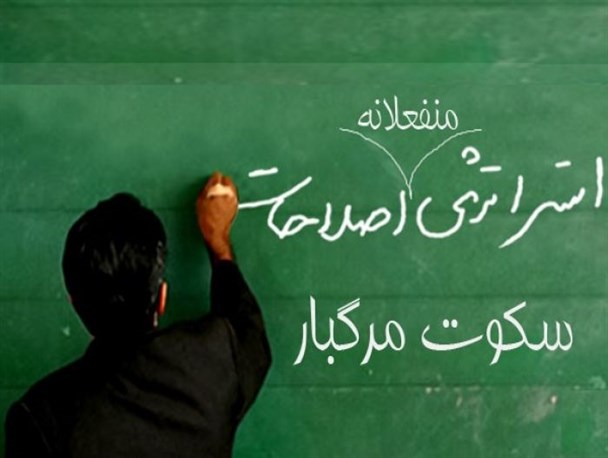 منفعلانه
استراتژی اصلاحات
سکوت مرگبار